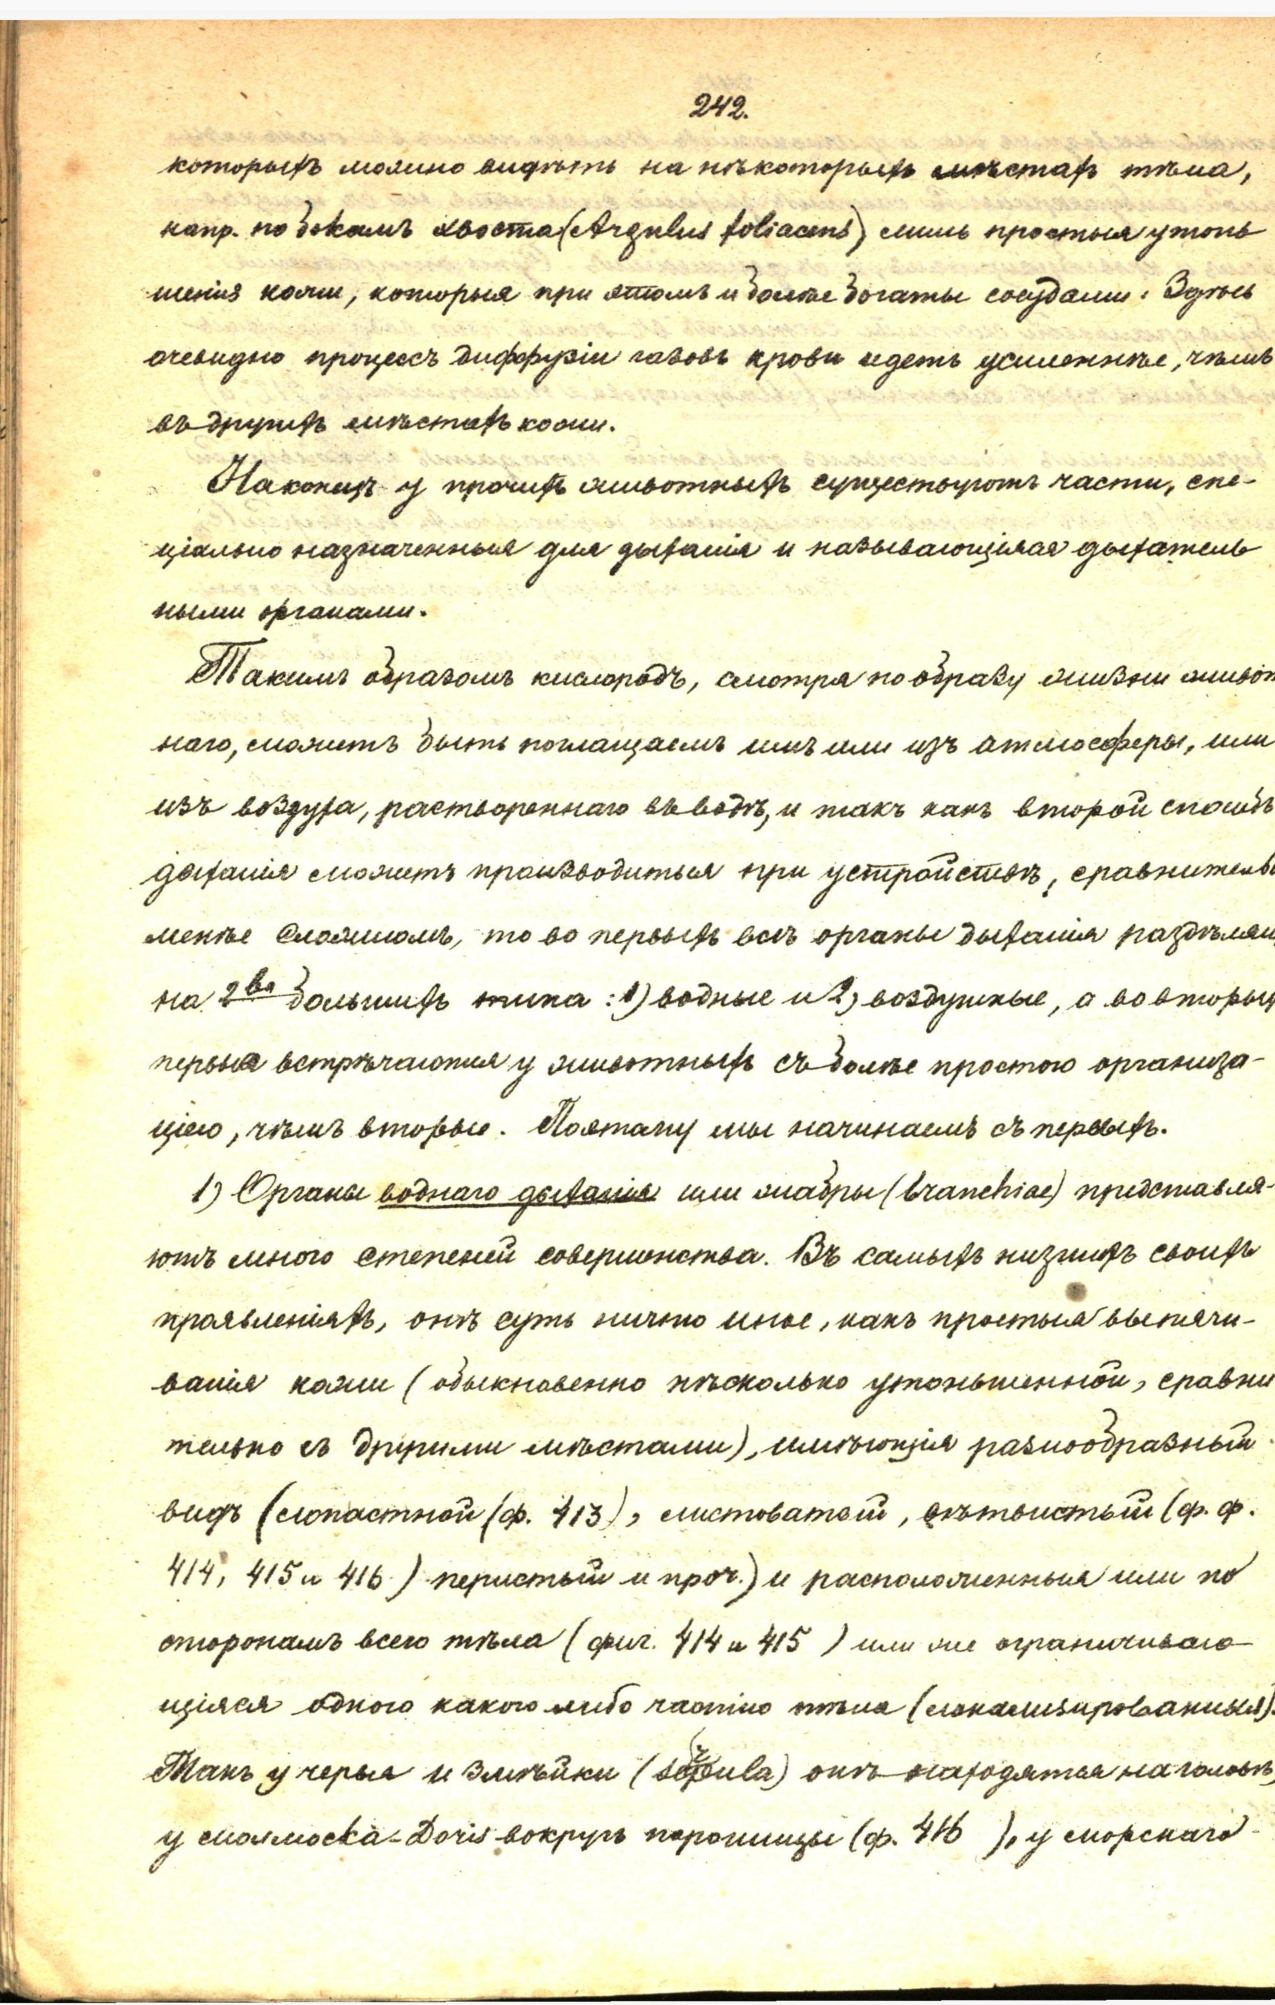 242.
которыхъ можно видѣть на нѣкоторыхъ мѣстахъ тѣла,
напр. по бокамъ хвоста (Argulus foliaceus) лишь простыя утонь
шенія кожи, которыя при этомъ и болѣе богаты сосудами. Здѣсь
очевидно процессъ диффузіи газовъ крови идетъ усиленнѣе, чѣмъ
въ другихъ мѣстахъ кожи.
Наконецъ у прочихъ животныхъ существуютъ части, спе-
ціально назначенныя для дыханія и называющіяся дыхатель
ными органами.
Такимъ образомъ кислородъ, смотря по образу жизни живот
наго, можетъ быть поглощаемъ имъ или изъ атмосферы, или
изъ воздуха, раствореннаго въ водѣ, и такъ какъ второй способъ
дыханія можетъ производиться при устройствѣ, сравнительн
менѣе сложномъ, то во первыхъ всѣ органы дыханія раздѣляю
на 2ва большихъ типа: 1) водные и 2) воздушные, а во вторых
первые встрѣчаются у животныхъ съ болѣе простою организа-
ціею, чѣмъ вторые. Поэтому мы начинаемъ съ первыхъ.
1) Органы воднаго дыханія или жабры (branchiae) представля-
ютъ много степеней совершенства. Въ самыхъ низшихъ своихъ
проявленіяхъ, онѣ суть ничто иное, какъ простыя выпячи-
ванія кожи (обыкновенно нѣсколько утоньшенной, сравни
тельно съ другими мѣстами), имѣющія разнообразный
видъ (лопастной (ф. 413), листоватой, вѣтвистый (ф. ф.
414, 415 и 416) перистый и проч.) и расположенныя или по
сторонамъ всего тѣла (фиг. 414 и 415) или же ограничиваю-
щіяся одною какою либо частію тѣла (локализированныя).
Такъ у червя и змѣйки (serpula) онѣ находятся на головѣ,
у моллюска - Doris вокругъ порошицы (ф. 416), у морскаго